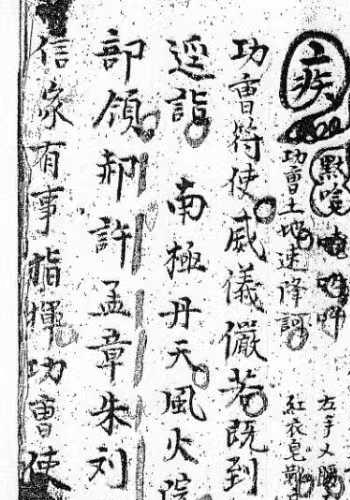 默唸
左手乂腰
功曹土地速降
紅衣皂靴
功曹符使威儀儼若既到
逕詣 南極丹天風火院
部領郝許孟章朱刘
信家有事指揮功曹使